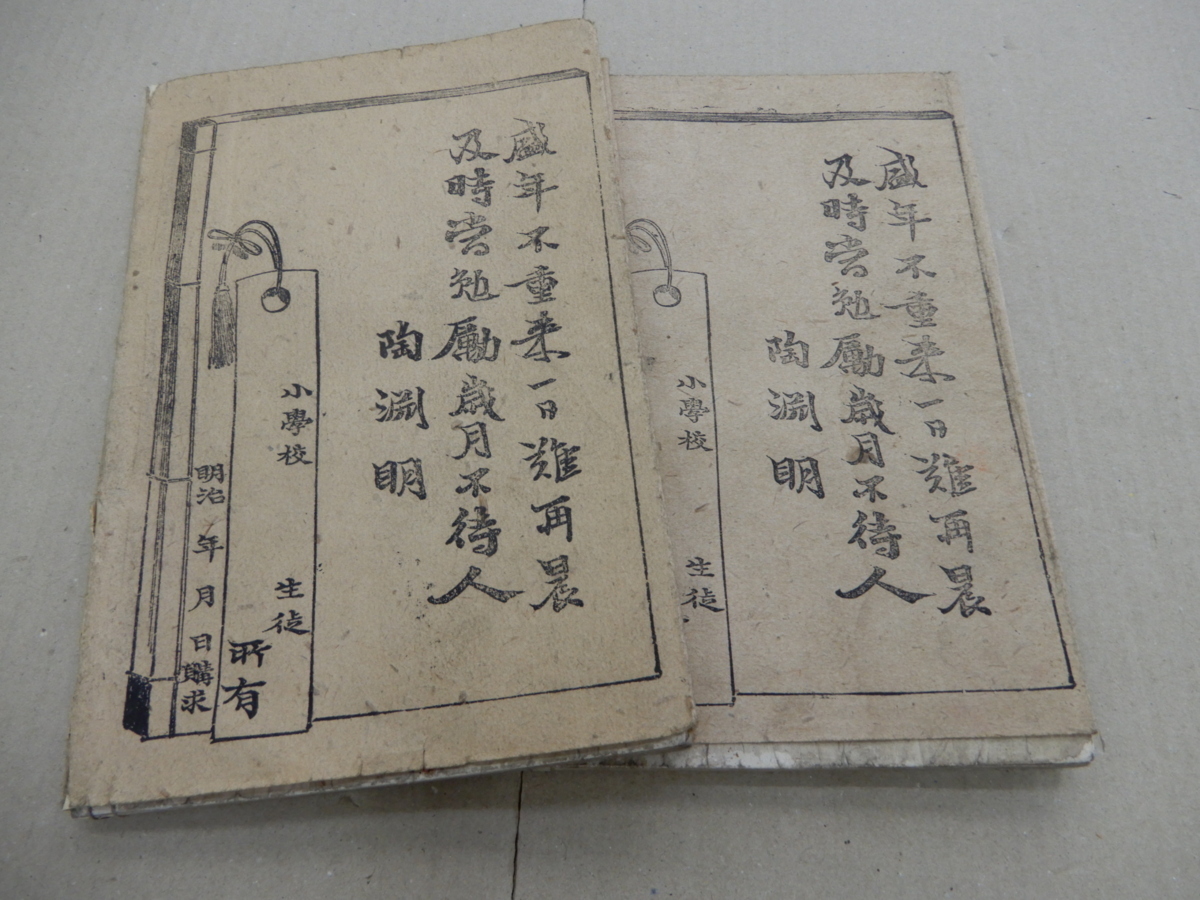 盛年不重来一日難再晨
及時當勉勵歳月不待人
陶淵明
小學校 生徒
所有
明治 年 月 日購求
盛年不重来一日難再晨
及時當勉勵歳月不待人
陶淵明
小學校 生徒